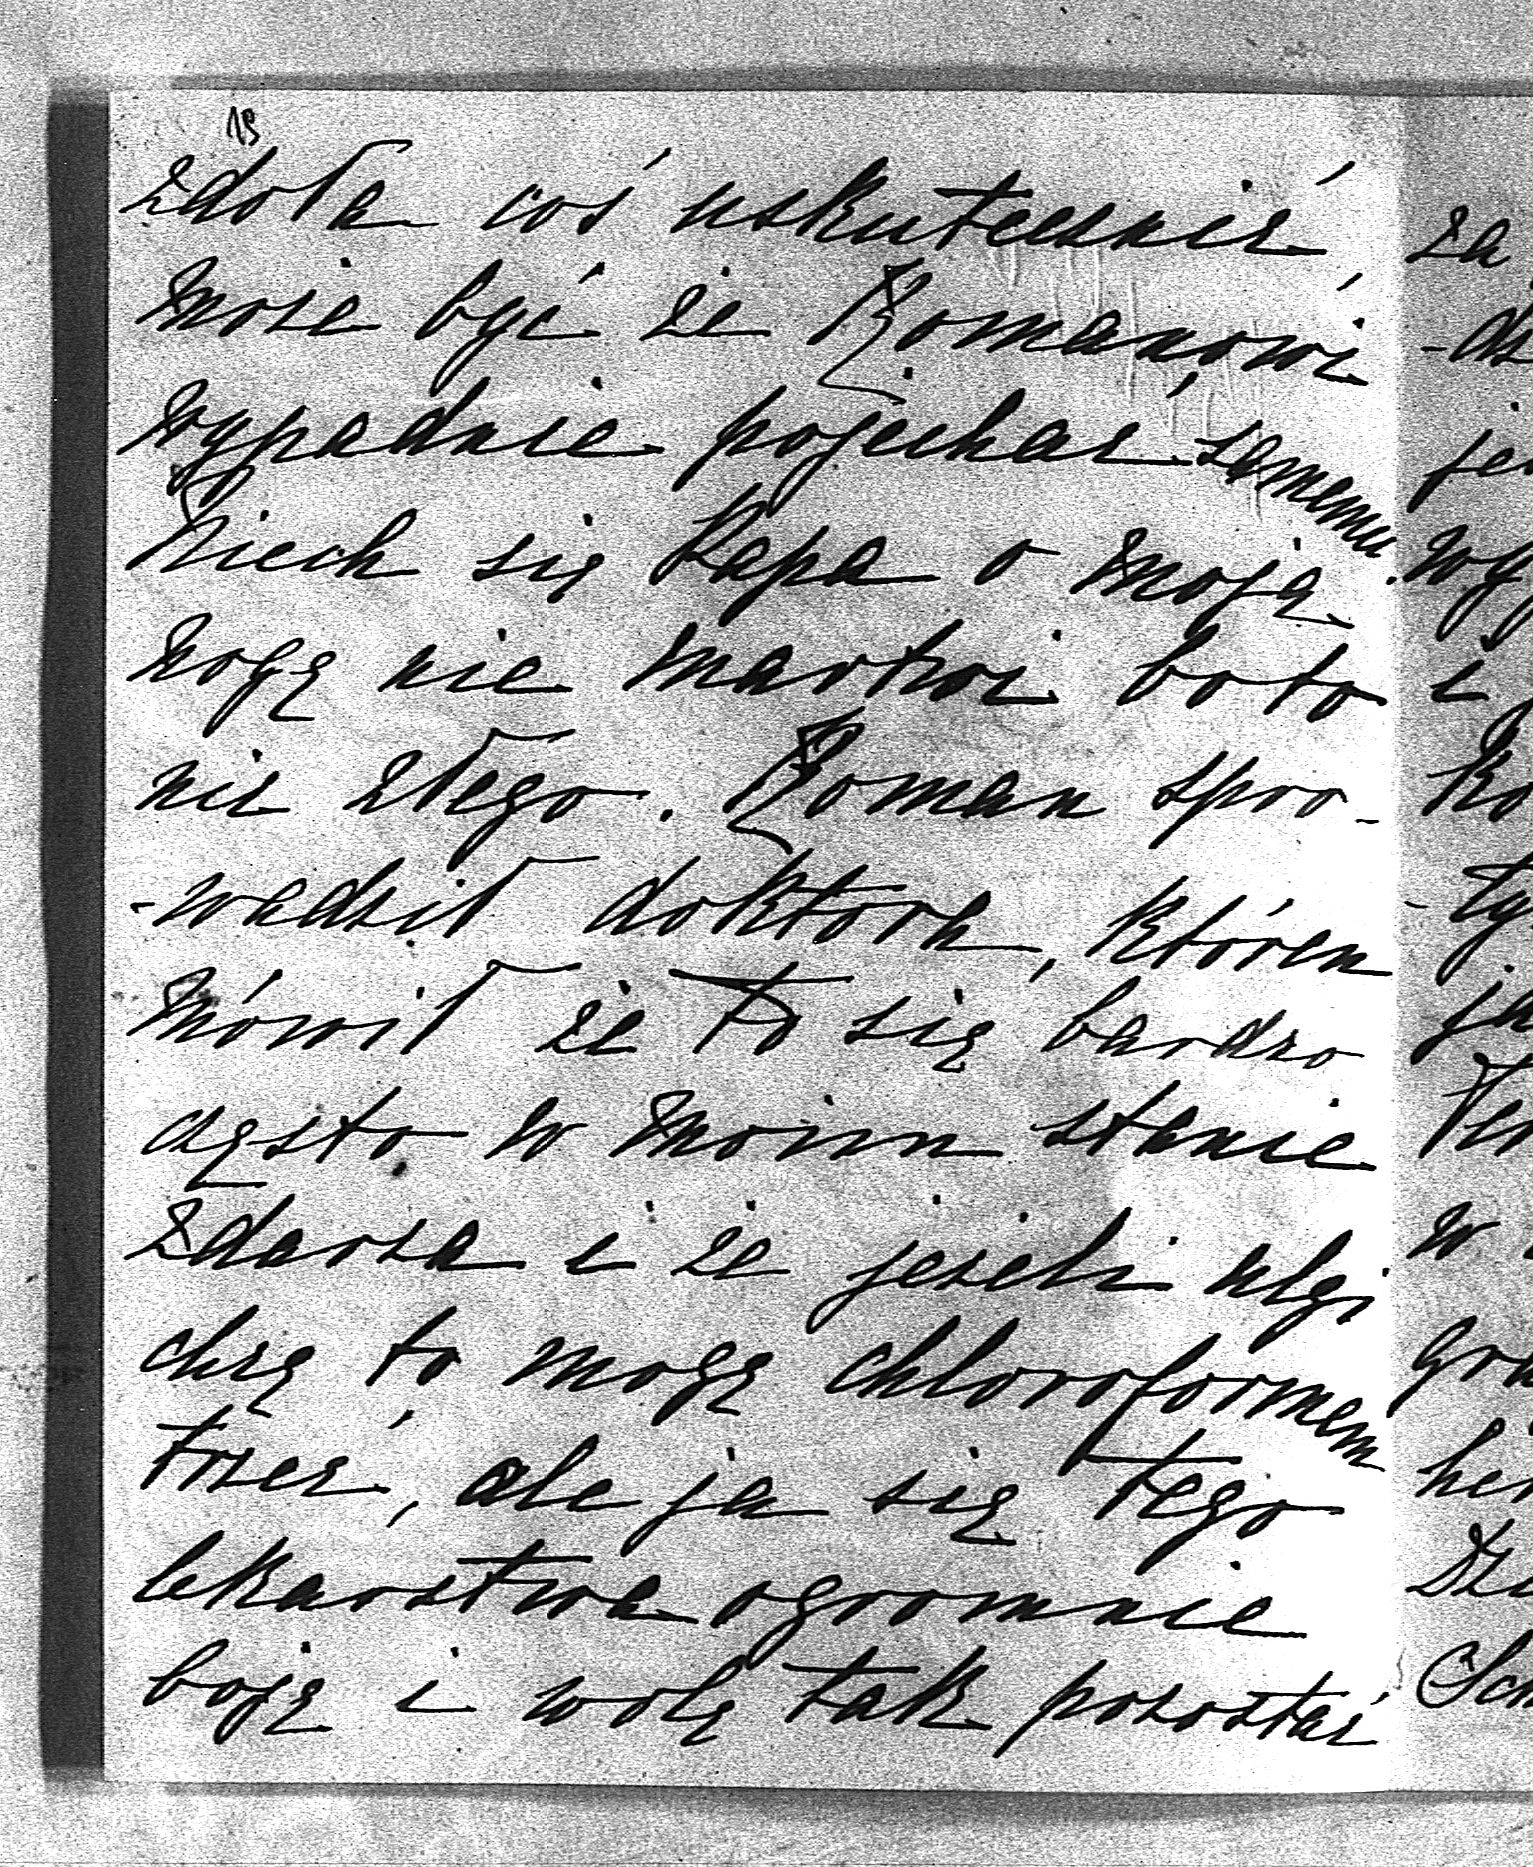 19
zdoła coś uskutecznić,
może być że Romanowi
wypadnie pojechać samemu.
Niech się Papa o moją
nogę nie martwi bo to
nic złego. Roman spro-
-wadził doktora, któren
mówił że to się bardzo
często w moim stanie
zdarza i że jeżeli ulgi
chcę to mogę chloroformem
trzeć, ale ja się tego
lekarstwa ogromnie
boję i wolę tak pozostać